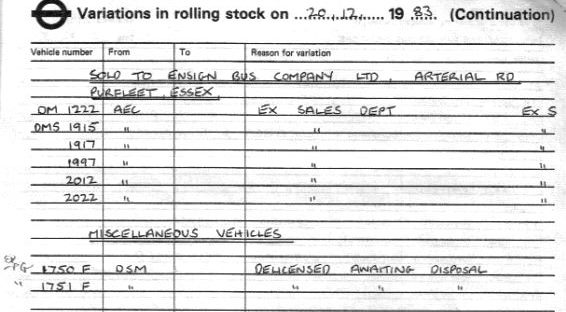 Variations in rolling stock on ...20..12...... 19 .83. (Continuation)
Vehicle number From To Reason for variation
SOLD TO ENSIGN BUS COMPANY LTD, ARTERIAL RD
PURFLEET, ESSEX.
OM 1222 AEC EX SALES DEPT EX S
OMS 1915 " " "
1917 " " "
1997 " " "
2012 " " "
2022 " " "
MISCELLANEOUS VEHICLES
EX
PG 1750 F DSM DELICENSED AWAITING DISPOSAL
" 1751 F " " " "